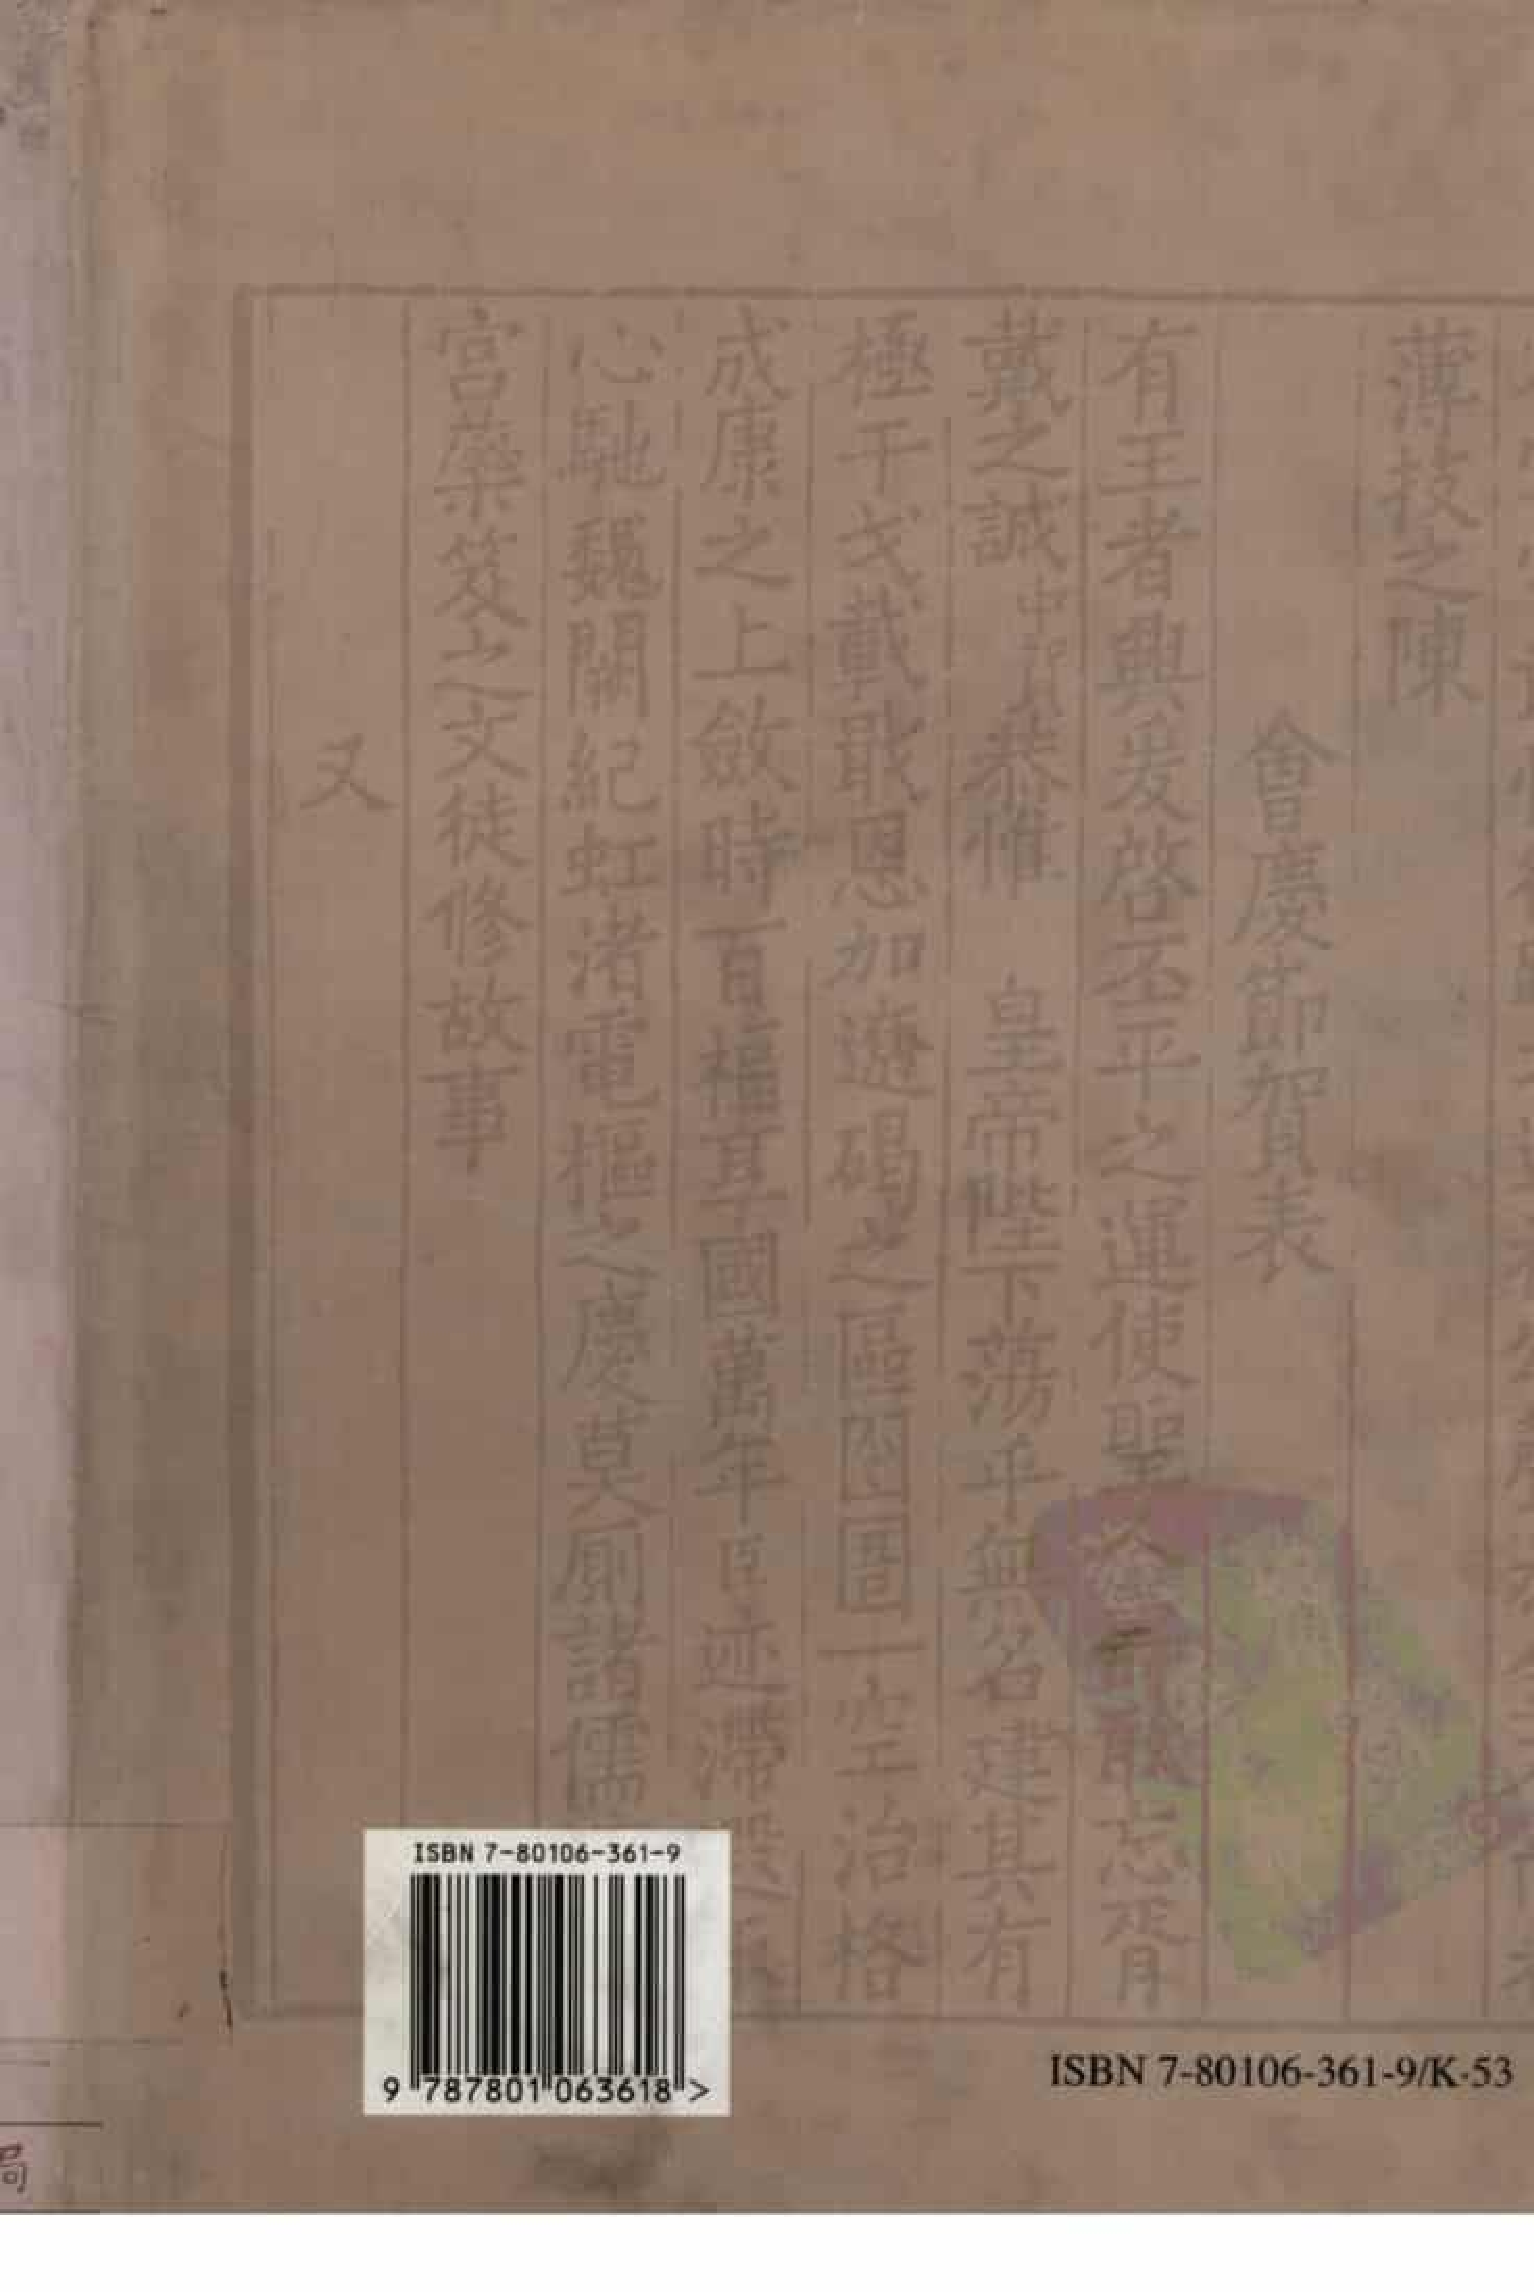 薄技之陳
會慶節賀表
有王者興爰啓丕平之運使聖
志胥
戴之誠中賀恭惟 皇帝陛下蕩乎無名建其有
極干戈載戢恩加遼碣之區囹圄一空治格
成康之上斂時百福享國萬年臣迹滯
心馳魏闕紀虹渚電樞之慶莫厠諸儒
宫蘂笈之文徒修故事
又
ISBN 7-80106-361-9
9 787801 063618 >
ISBN 7-80106-361-9/K·53
局